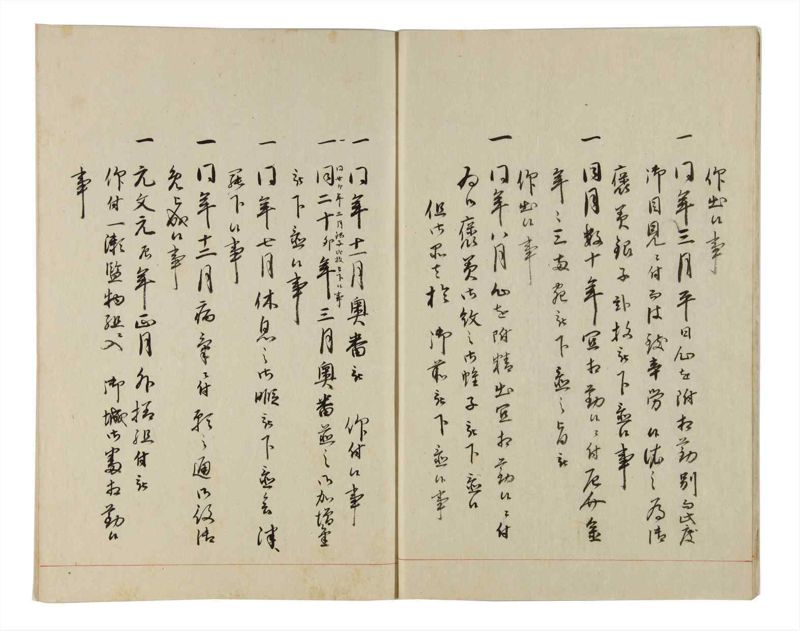 作出候事
一同年三月平日心を附相勤別而此度
御目見ニ付而は致辛労候依之為御
褒美銀子弐枚被下置候事
一同月数十年宜相勤候ニ付
年々三両宛被下置之旨被
作出候事
一同年八月心を附精出宜相勤候ニ付
為御褒美御紋之御帷子被下置候
但御召於御前被下置候事
一同年十一月奥番被 作付候事
一同二十卯年三月奥番並之御加増金
被下置候事
一同年七月休息之御暇被下置
罷下候事
一同年十二月病気ニ付願之通御役御
免被成候事
一元文元辰年正月外様組付被
作付一瀬監物組入 御城御番相勤候
事